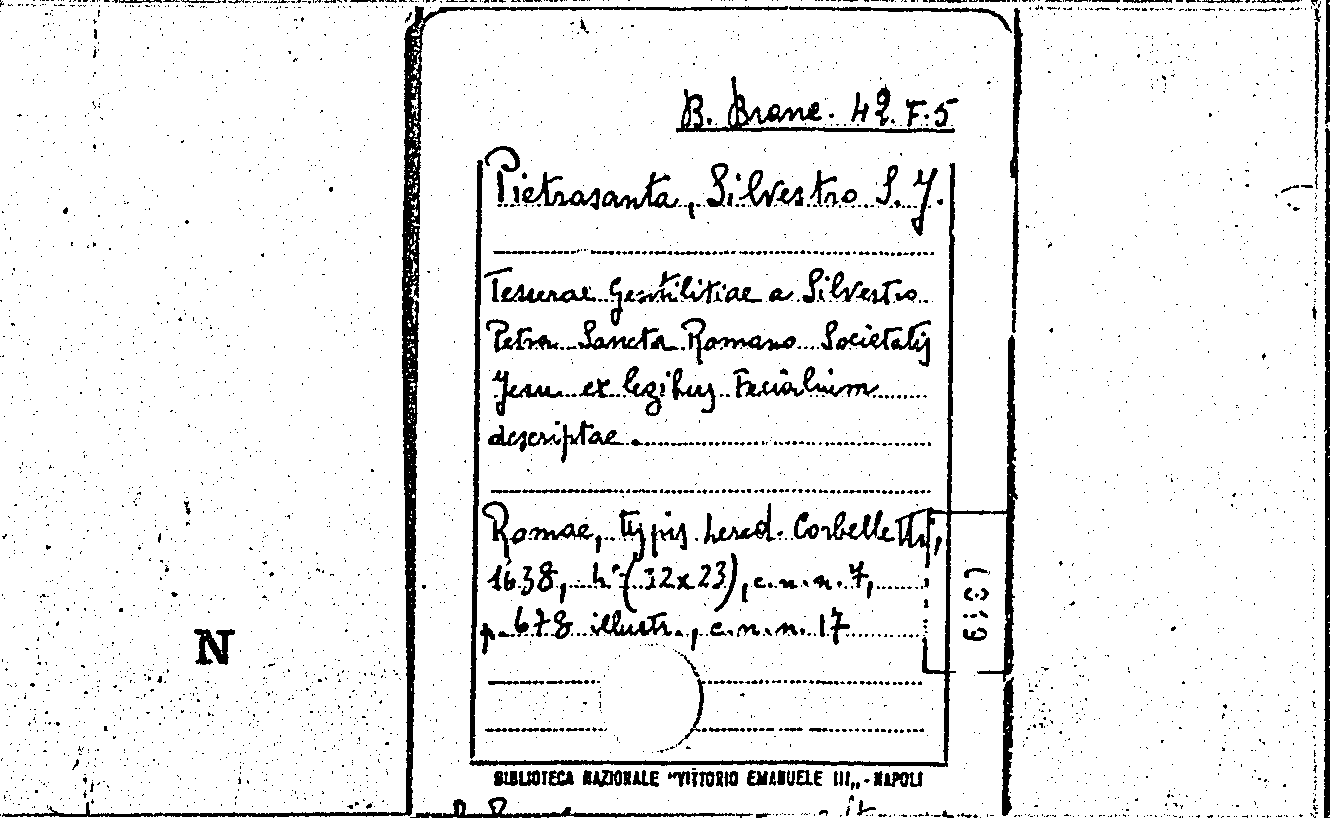 B. Branc. 42. F. 5
Pietrasanta, Silvestro S. J.
Tesserae Gentilitiae a Silvestro
Petra Sancta Romano Societatis
Jesu ex legibus Fecialium
descriptae.
Romae, typis hered. Corbelletti,
1638, 4° (32x23), c.n.n. 7,
p. 678 illustr., c.n.n. 17
N
BIBLIOTECA NAZIONALE "VITTORIO EMANUELE III„ - NAPOLI